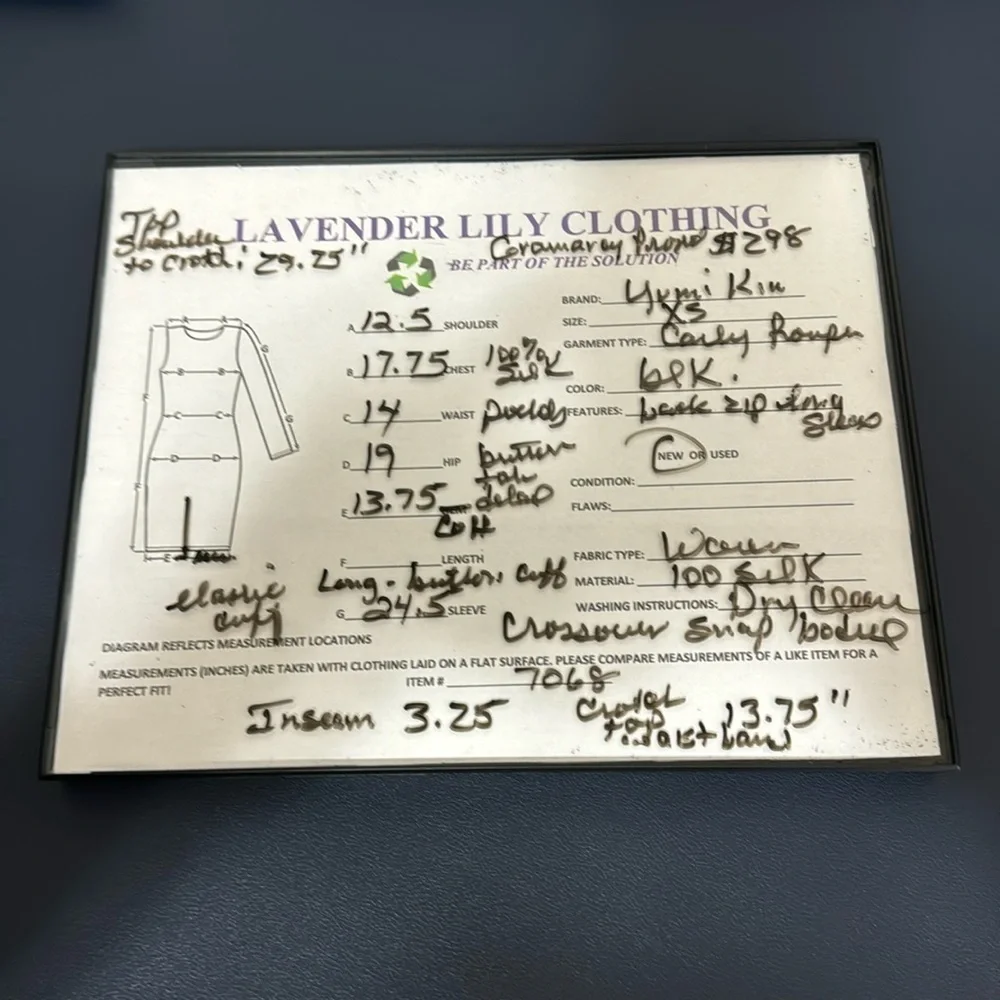 Top
Shoulder
to crotch: 29.75"
LAVENDER LILY CLOTHING
$298
BE PART OF THE SOLUTION
BRAND: Yumi Kim
SIZE: XS
GARMENT TYPE: Carly Romper
COLOR: blk.
FEATURES: back zip long
NEW OR USED
CONDITION:
FLAWS:
FABRIC TYPE: Woven
MATERIAL: 100 Silk
WASHING INSTRUCTIONS: Dry Clean
Crossover Snap bodice
A 12.5 SHOULDER
B 17.75 CHEST 100%
Silk
C 14 WAIST
D 19 HIP button
E 13.75
Cuff
F LENGTH
Long - button cuff
G 24.5 SLEEVE
elastic
cuff
A A
B B
C C
D D
E
F
G
G
DIAGRAM REFLECTS MEASUREMENT LOCATIONS
MEASUREMENTS (INCHES) ARE TAKEN WITH CLOTHING LAID ON A FLAT SURFACE. PLEASE COMPARE MEASUREMENTS OF A LIKE ITEM FOR A
PERFECT FIT!
ITEM # 7068
Inseam 3.25
Crotch
to
waistband 13.75"